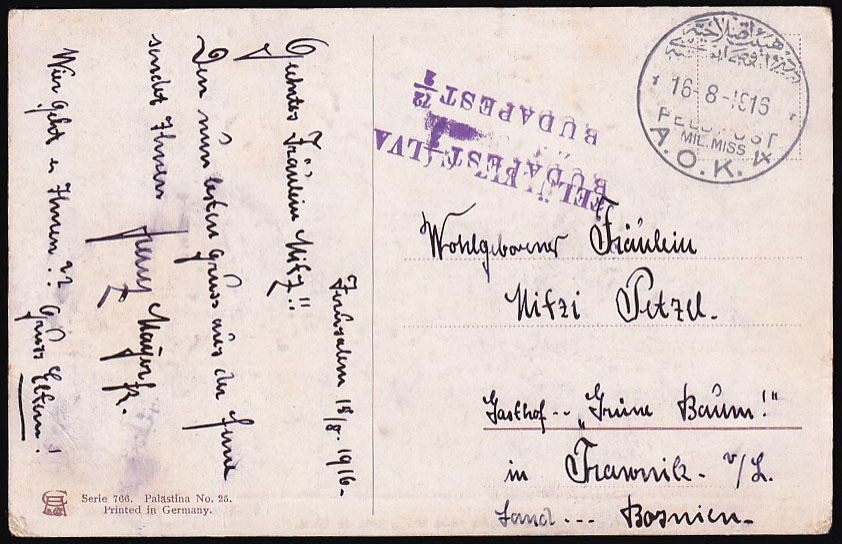 Jerusalem 18/8. 1916-
Geehrtes Fräulein Mitzi!!
Den aus der Ferne
sendet Ihnen
Mayer
Wie geht es Ihnen?? Gruss Eltern!
Serie 766. Palästina No. 25.
Printed in Germany.
16-8-1916
FELDPOST
MIL.MISS
A.O.K. IX
BUDAPEST 72
FELÜLVIZSGÁLVA
BUDAPEST
Wohlgeborener Fräulein
Mitzi Petzel.
Gasthof -- „Grüne Baum!"
in Trawnik. v/L.
Land --- Bosnien-